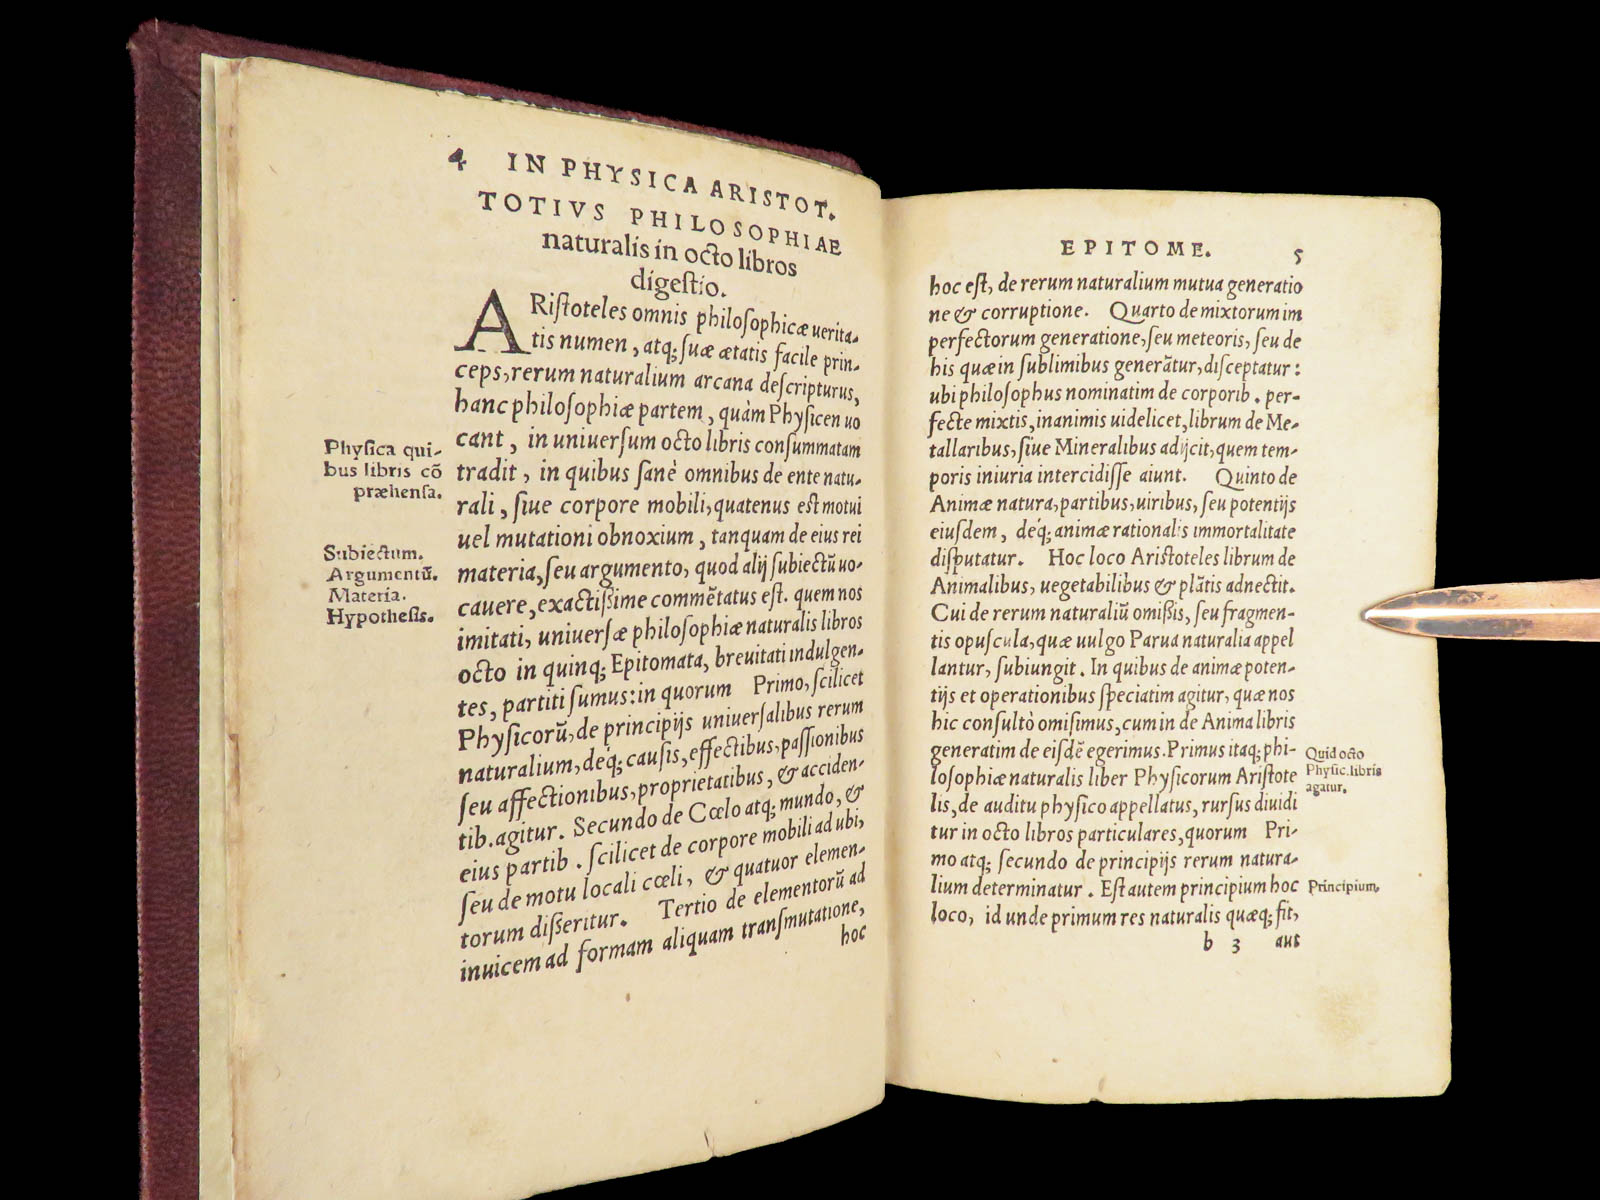 4 IN PHYSICA ARISTOT.
TOTIVS PHILOSOPHIAE
naturalis in octo libros
digeſtio.
ARiſtoteles omnis philoſophicæ uerita-
tis numen, atq; ſuæ ætatis facile prin-
ceps, rerum naturalium arcana deſcripturus,
hanc philoſophiæ partem, quàm Phyſicen uo
cant, in uniuerſum octo libris conſummatam
tradit, in quibus ſanè omnibus de ente natu-
rali, ſiue corpore mobili, quatenus eſt motui
uel mutationi obnoxium, tanquam de eius rei
materia, ſeu argumento, quod alij ſubiectū uo-
cauere, exactiſsime commētatus eſt. quem nos
imitati, uniuerſæ philoſophiæ naturalis libros
octo in quinq; Epitomata, breuitati indulgen-
tes, partiti ſumus: in quorum Primo, ſcilicet
Phyſicorū, de principijs uniuerſalibus rerum
naturalium, déq; cauſis, effectibus, paſſionibus
ſeu affectionibus, proprietatibus, & acciden-
tib. agitur. Secundo de Cœlo atq; mundo, &
eius partib. ſcilicet de corpore mobili ad ubi,
ſeu de motu locali cœli, & quatuor elemen-
torum diſſeritur. Tertio de elementorū ad
inuicem ad formam aliquam tranſmutatione,
hoc
Phyſica qui-
bus libris cō
præhenſa.
Subiectum.
Argumentū.
Materia.
Hypotheſis.
EPITOME. 5
hoc eſt, de rerum naturalium mutua generatio
ne & corruptione. Quarto de mixtorum im
perfectorum generatione, ſeu meteoris, ſeu de
his quæ in ſublimibus generātur, diſceptatur:
ubi philoſophus nominatim de corporib. per-
fecte mixtis, inanimis uidelicet, librum de Me-
tallaribus, ſiue Mineralibus adijcit, quem tem-
poris iniuria intercidiſſe aiunt. Quinto de
Animæ natura, partibus, uiribus, ſeu potentijs
eiuſdem, déq; animæ rationalis immortalitate
diſputatur. Hoc loco Ariſtoteles librum de
Animalibus, uegetabilibus & plātis adnectit.
Cui de rerum naturaliū omiſsis, ſeu fragmen-
tis opuſcula, quæ uulgo Parua naturalia appel
lantur, ſubiungit. In quibus de animæ poten-
tijs et operationibus ſpeciatim agitur, quæ nos
hic conſultò omiſimus, cum in de Anima libris
generatim de eiſdē egerimus. Primus itaq; phi-
loſophiæ naturalis liber Phyſicorum Ariſtote
lis, de auditu phyſico appellatus, rurſus diuidi
tur in octo libros particulares, quorum Pri-
mo atq; ſecundo de principijs rerum natura-
lium determinatur. Eſt autem principium hoc
loco, id unde primum res naturalis quæq; fit,
b 3 aut
Quid octo
Phyſic. libris
agatur.
Principium.